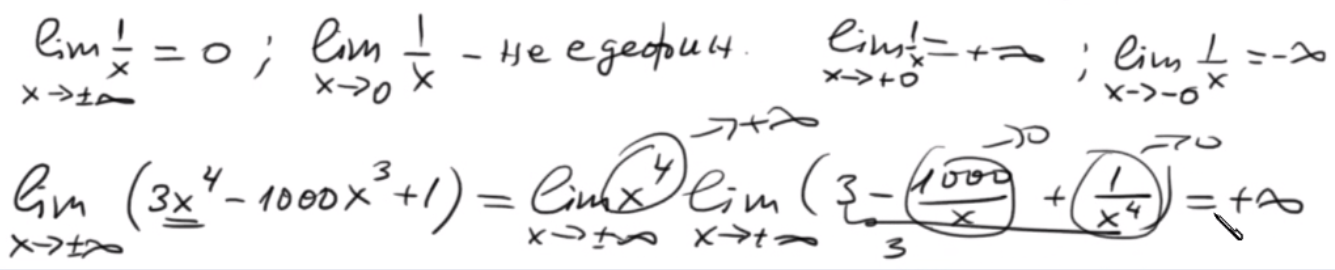 lim x→±∞ 1/x = 0 ; lim x→0 1/x - не е дефин. lim x→+0 1/x = +∞ ; lim x→-0 1/x = -∞
lim x→±∞ (3x⁴ - 1000x³ + 1) = lim x→±∞ x⁴ →+∞ lim x→±∞ (3 - 1000/x →0 + 1/x⁴ →0) = +∞
3